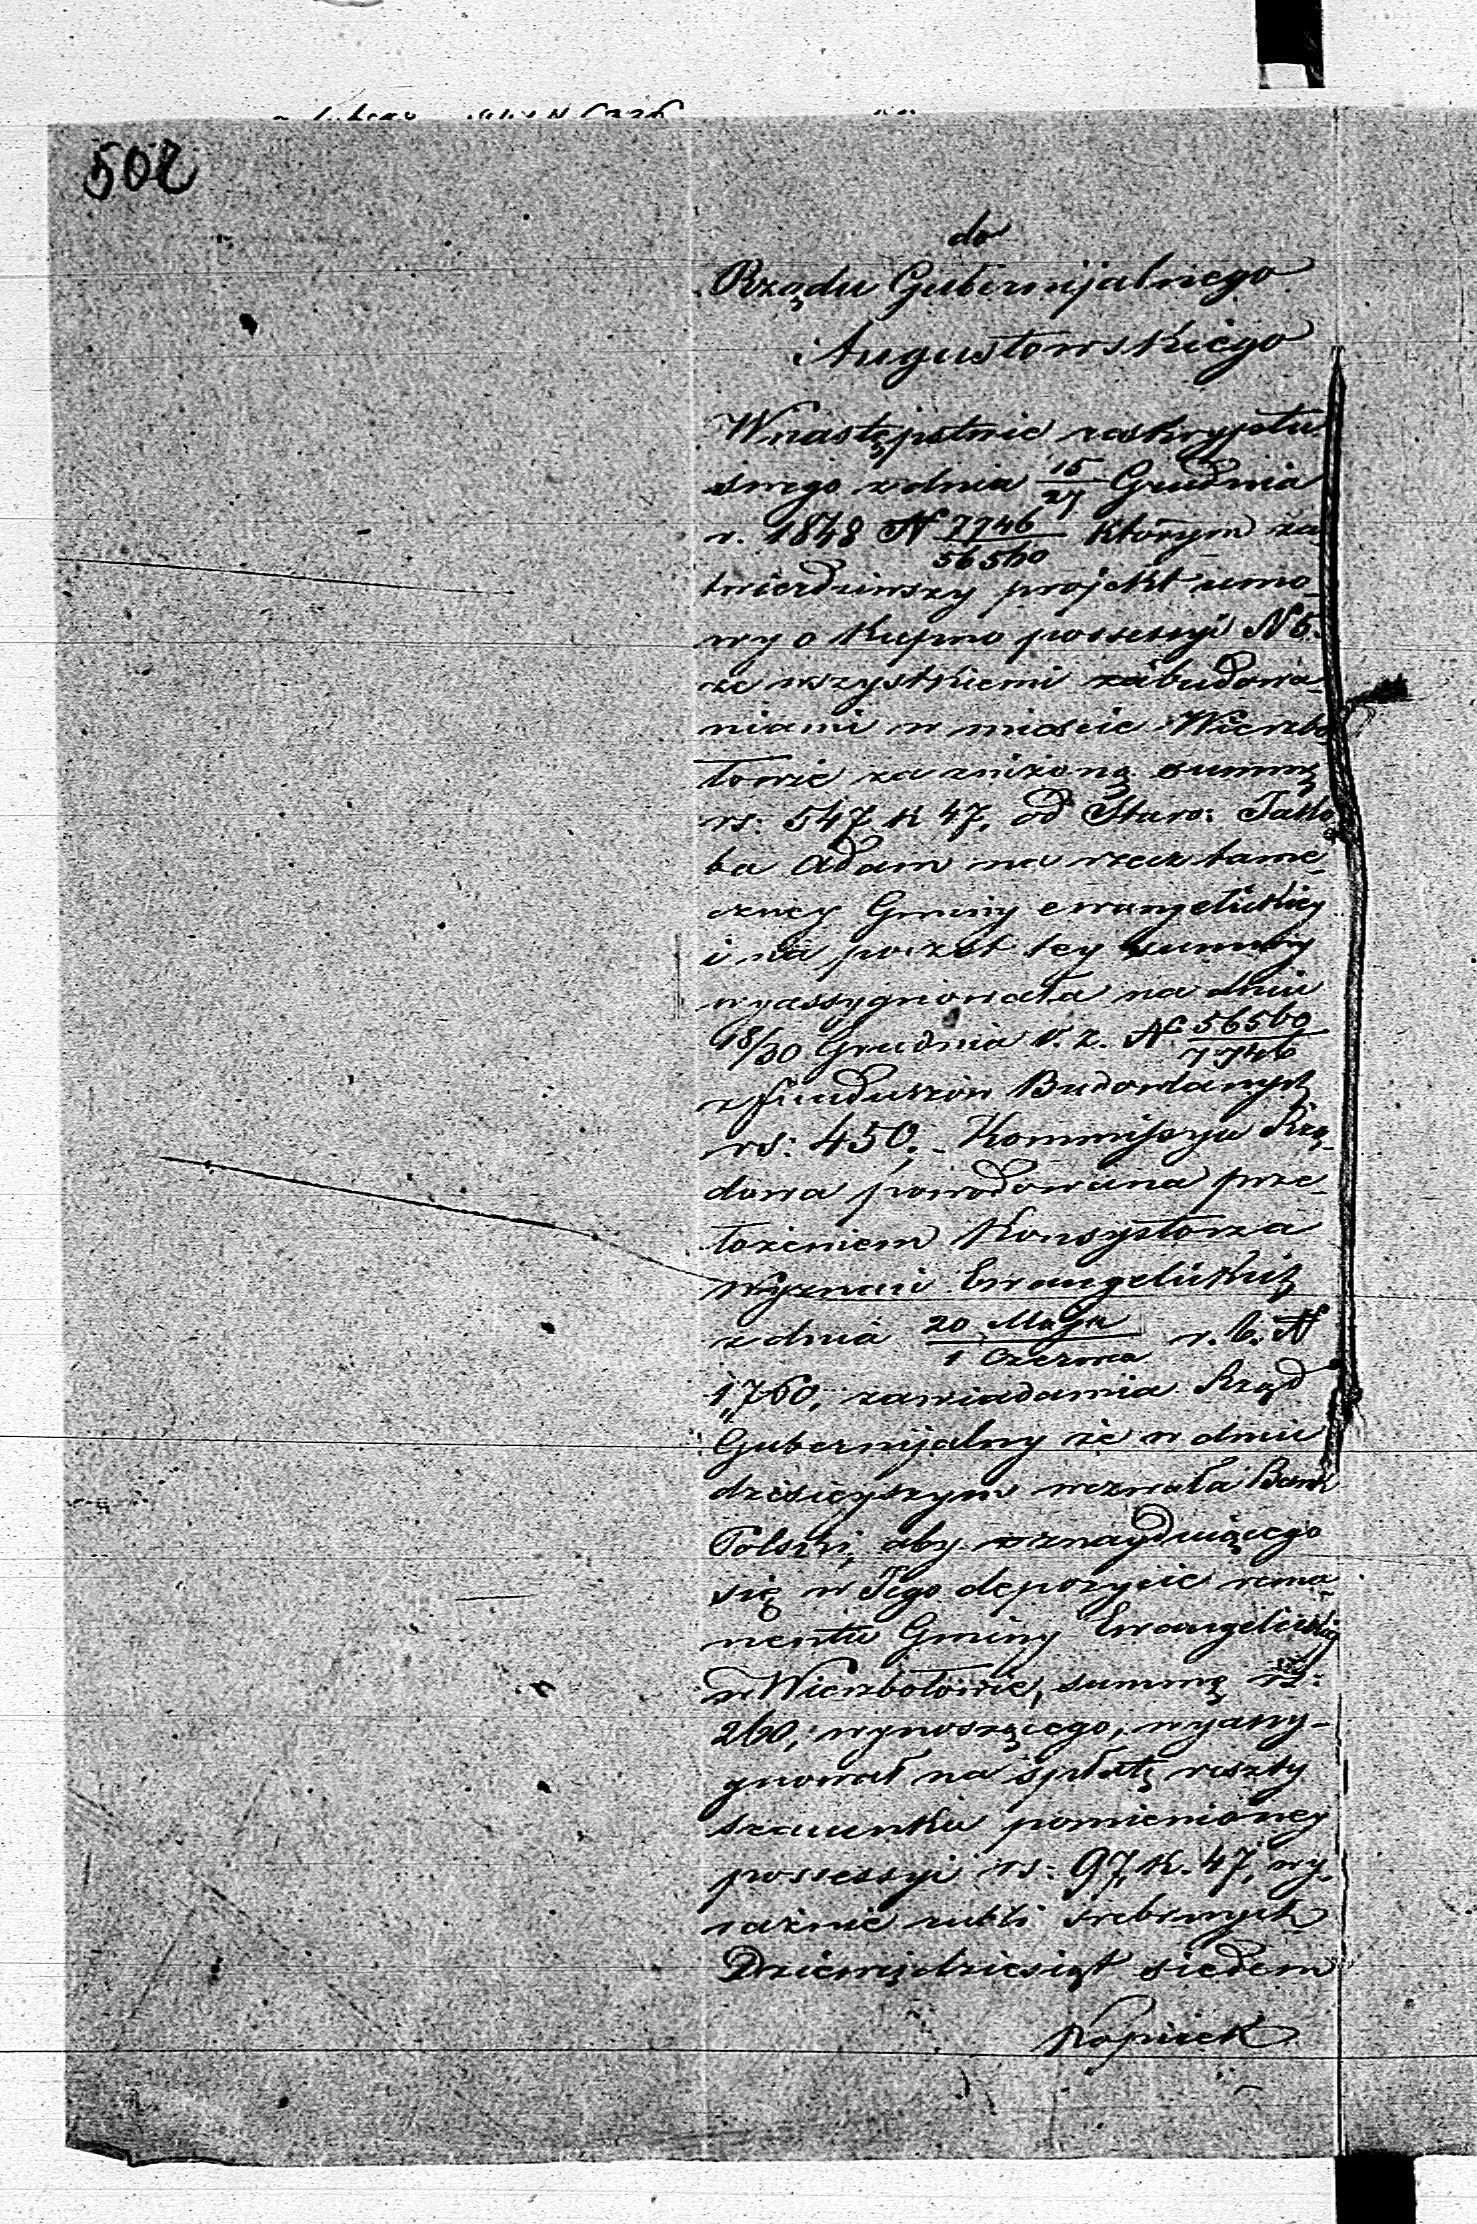 502
do
Rządu Gubernijalnego
Augustowskiego
W następstwie reskryptu
swego z dnia 15/27 Grudnia
r. 1848 N 7746/56560 którym za-
twierdziwszy projekt umo-
wy o kupno possessyi N 6.
ze wszystkiemi zabudowa-
niami w mieście Wierzbo
łowie za zniżoną summę
rs: 547 k 47, od Staro: Jakó
ba Adam na rzecz tame-
cznej Gminy ewangelickiej
i na poczet tey summy
wyassygnowała na dniu
18/30 Grudnia r. z. N 56560/7746
z funduszów Budowlanych
rs: 450,- Kommissya Rzą-
dowa powodowana prze-
łożeniem Konsystorza
Wyznań Ewangelickich
z dnia 20 Maja/1 Czerwca r. b. N
1,760, zawiadamia Rząd
Gubernijalny że w dniu
dzisieyszym wezwała Bank
Polski, aby z znayduiącego
się w Jego depozycie rema-
nentu Gminy Ewangelickiej
w Wierzbołowie, summę rs:
260, wynoszącego, wyassy-
gnował na spłatę reszty
szacunku pomienioney
possessyi rs: 97, k. 47, wy-
raźnie rubli srebrnych
Dziewięćdziesiąt siedem
Kopiiek